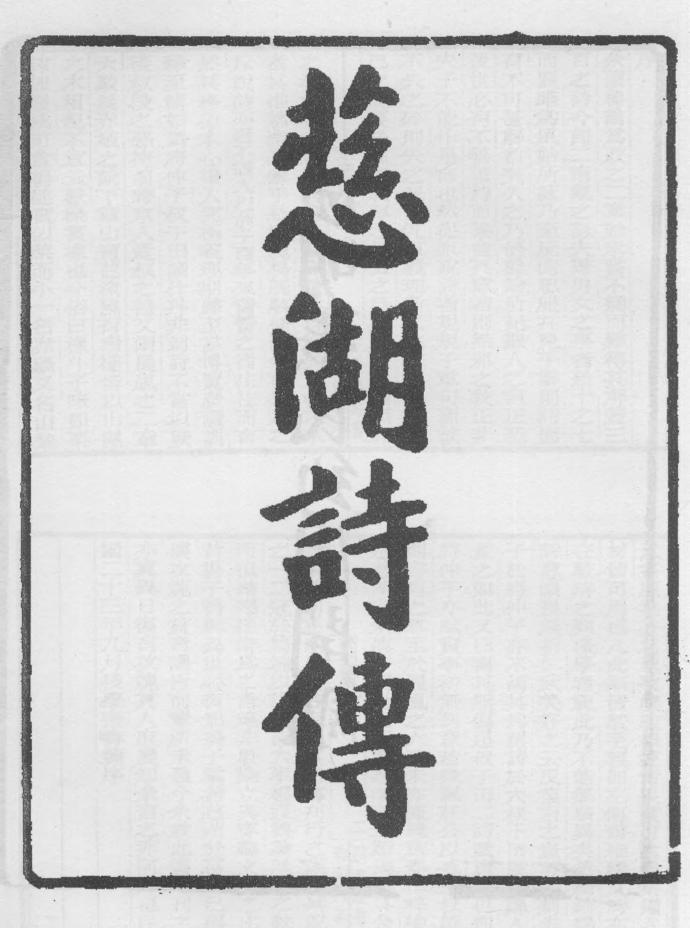 慈湖詩傳